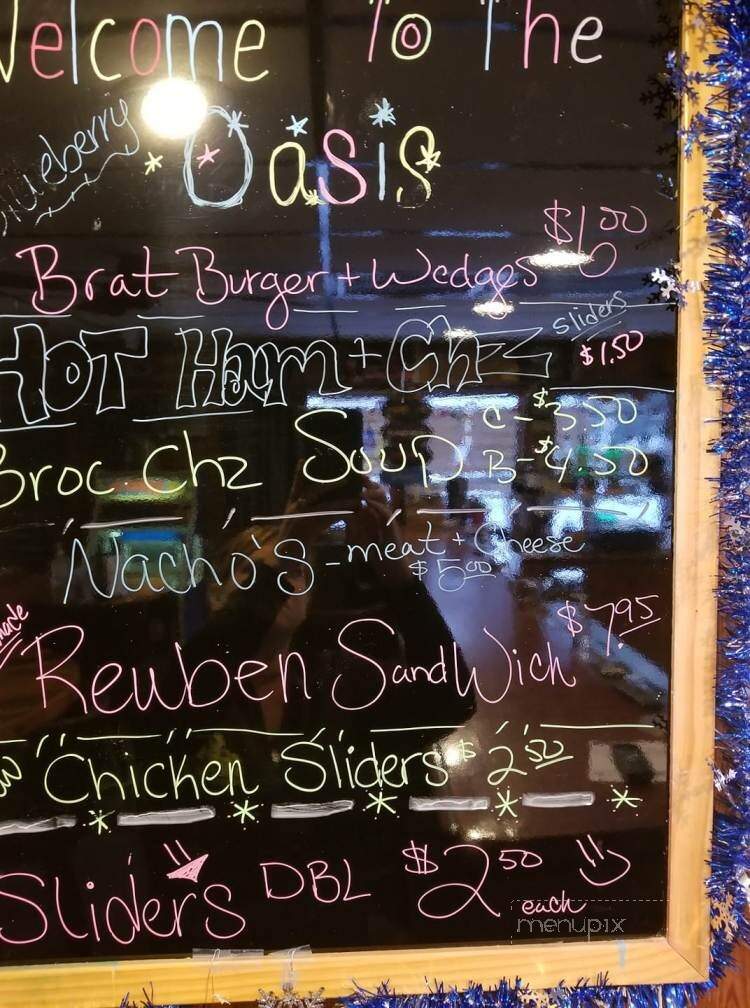 Welcome To The
Blueberry
Oasis
Brat Burger + Wedges $6.00
HOT Ham + Chz sliders $1.50
Broc Chz Soup C - $3.50
B - $4.50
Nacho's - meat + Cheese
$5.00
Reuben SandWich $7.95
Chicken Sliders $2.50
Sliders DBL $2.50
each
menupix